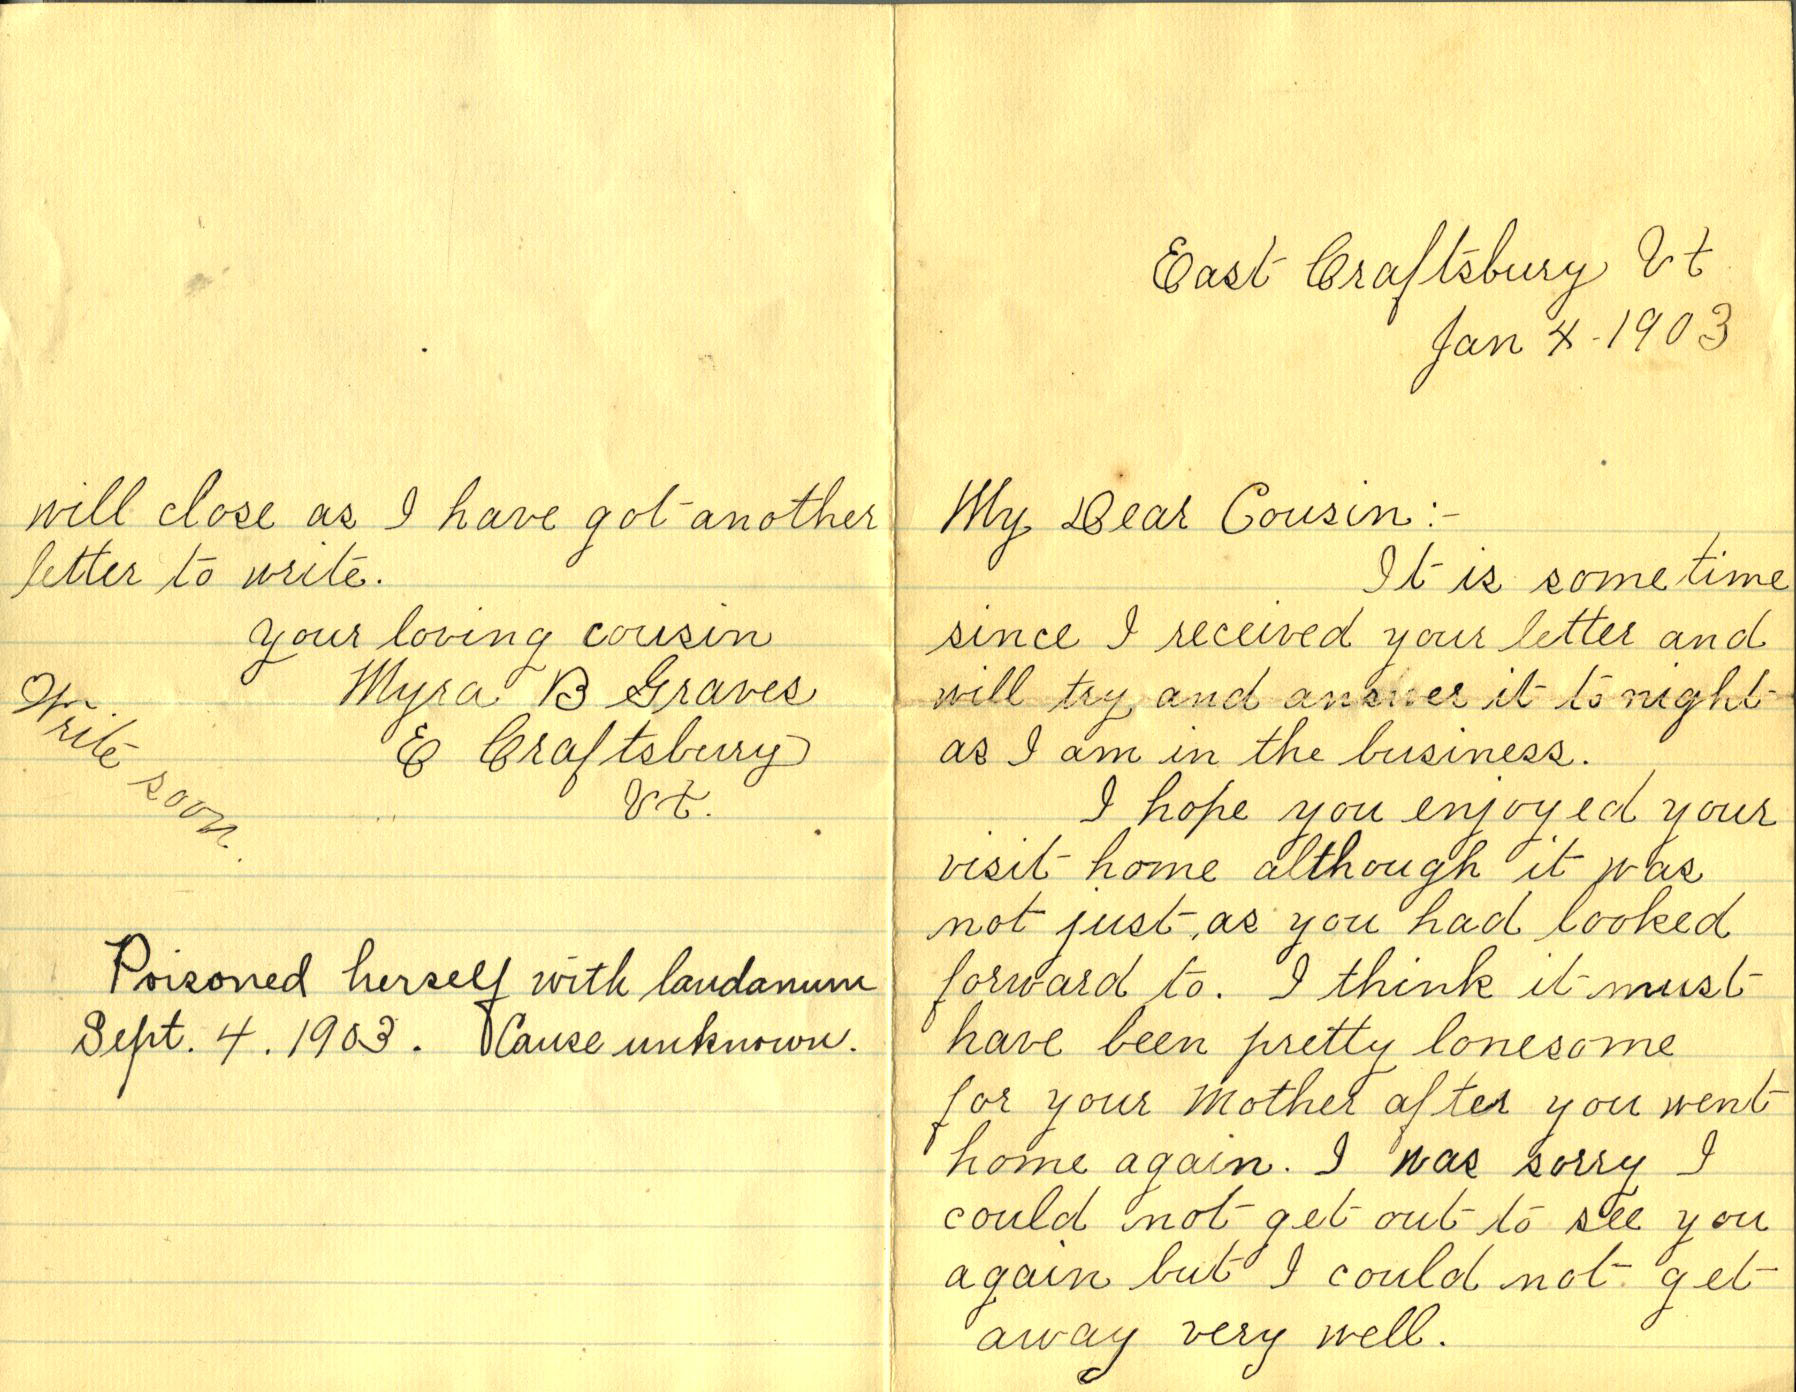 East Craftsbury Vt
Jan 4 - 1903
My Dear Cousin:-
It is some time
since I received your letter and
will try and answer it to night
as I am in the business.
I hope you enjoyed your
visit home although it was
not just as you had looked
forward to. I think it must
have been pretty lonesome
for your Mother after you went
home again. I was sorry I
could not get out to see you
again but I could not get
away very well.
will close as I have got another
letter to write.
Your loving cousin
Myra B Graves
E Craftsbury
Vt.
Write soon.
Poisoned herself with laudanum
Sept. 4. 1903. Cause unknown.